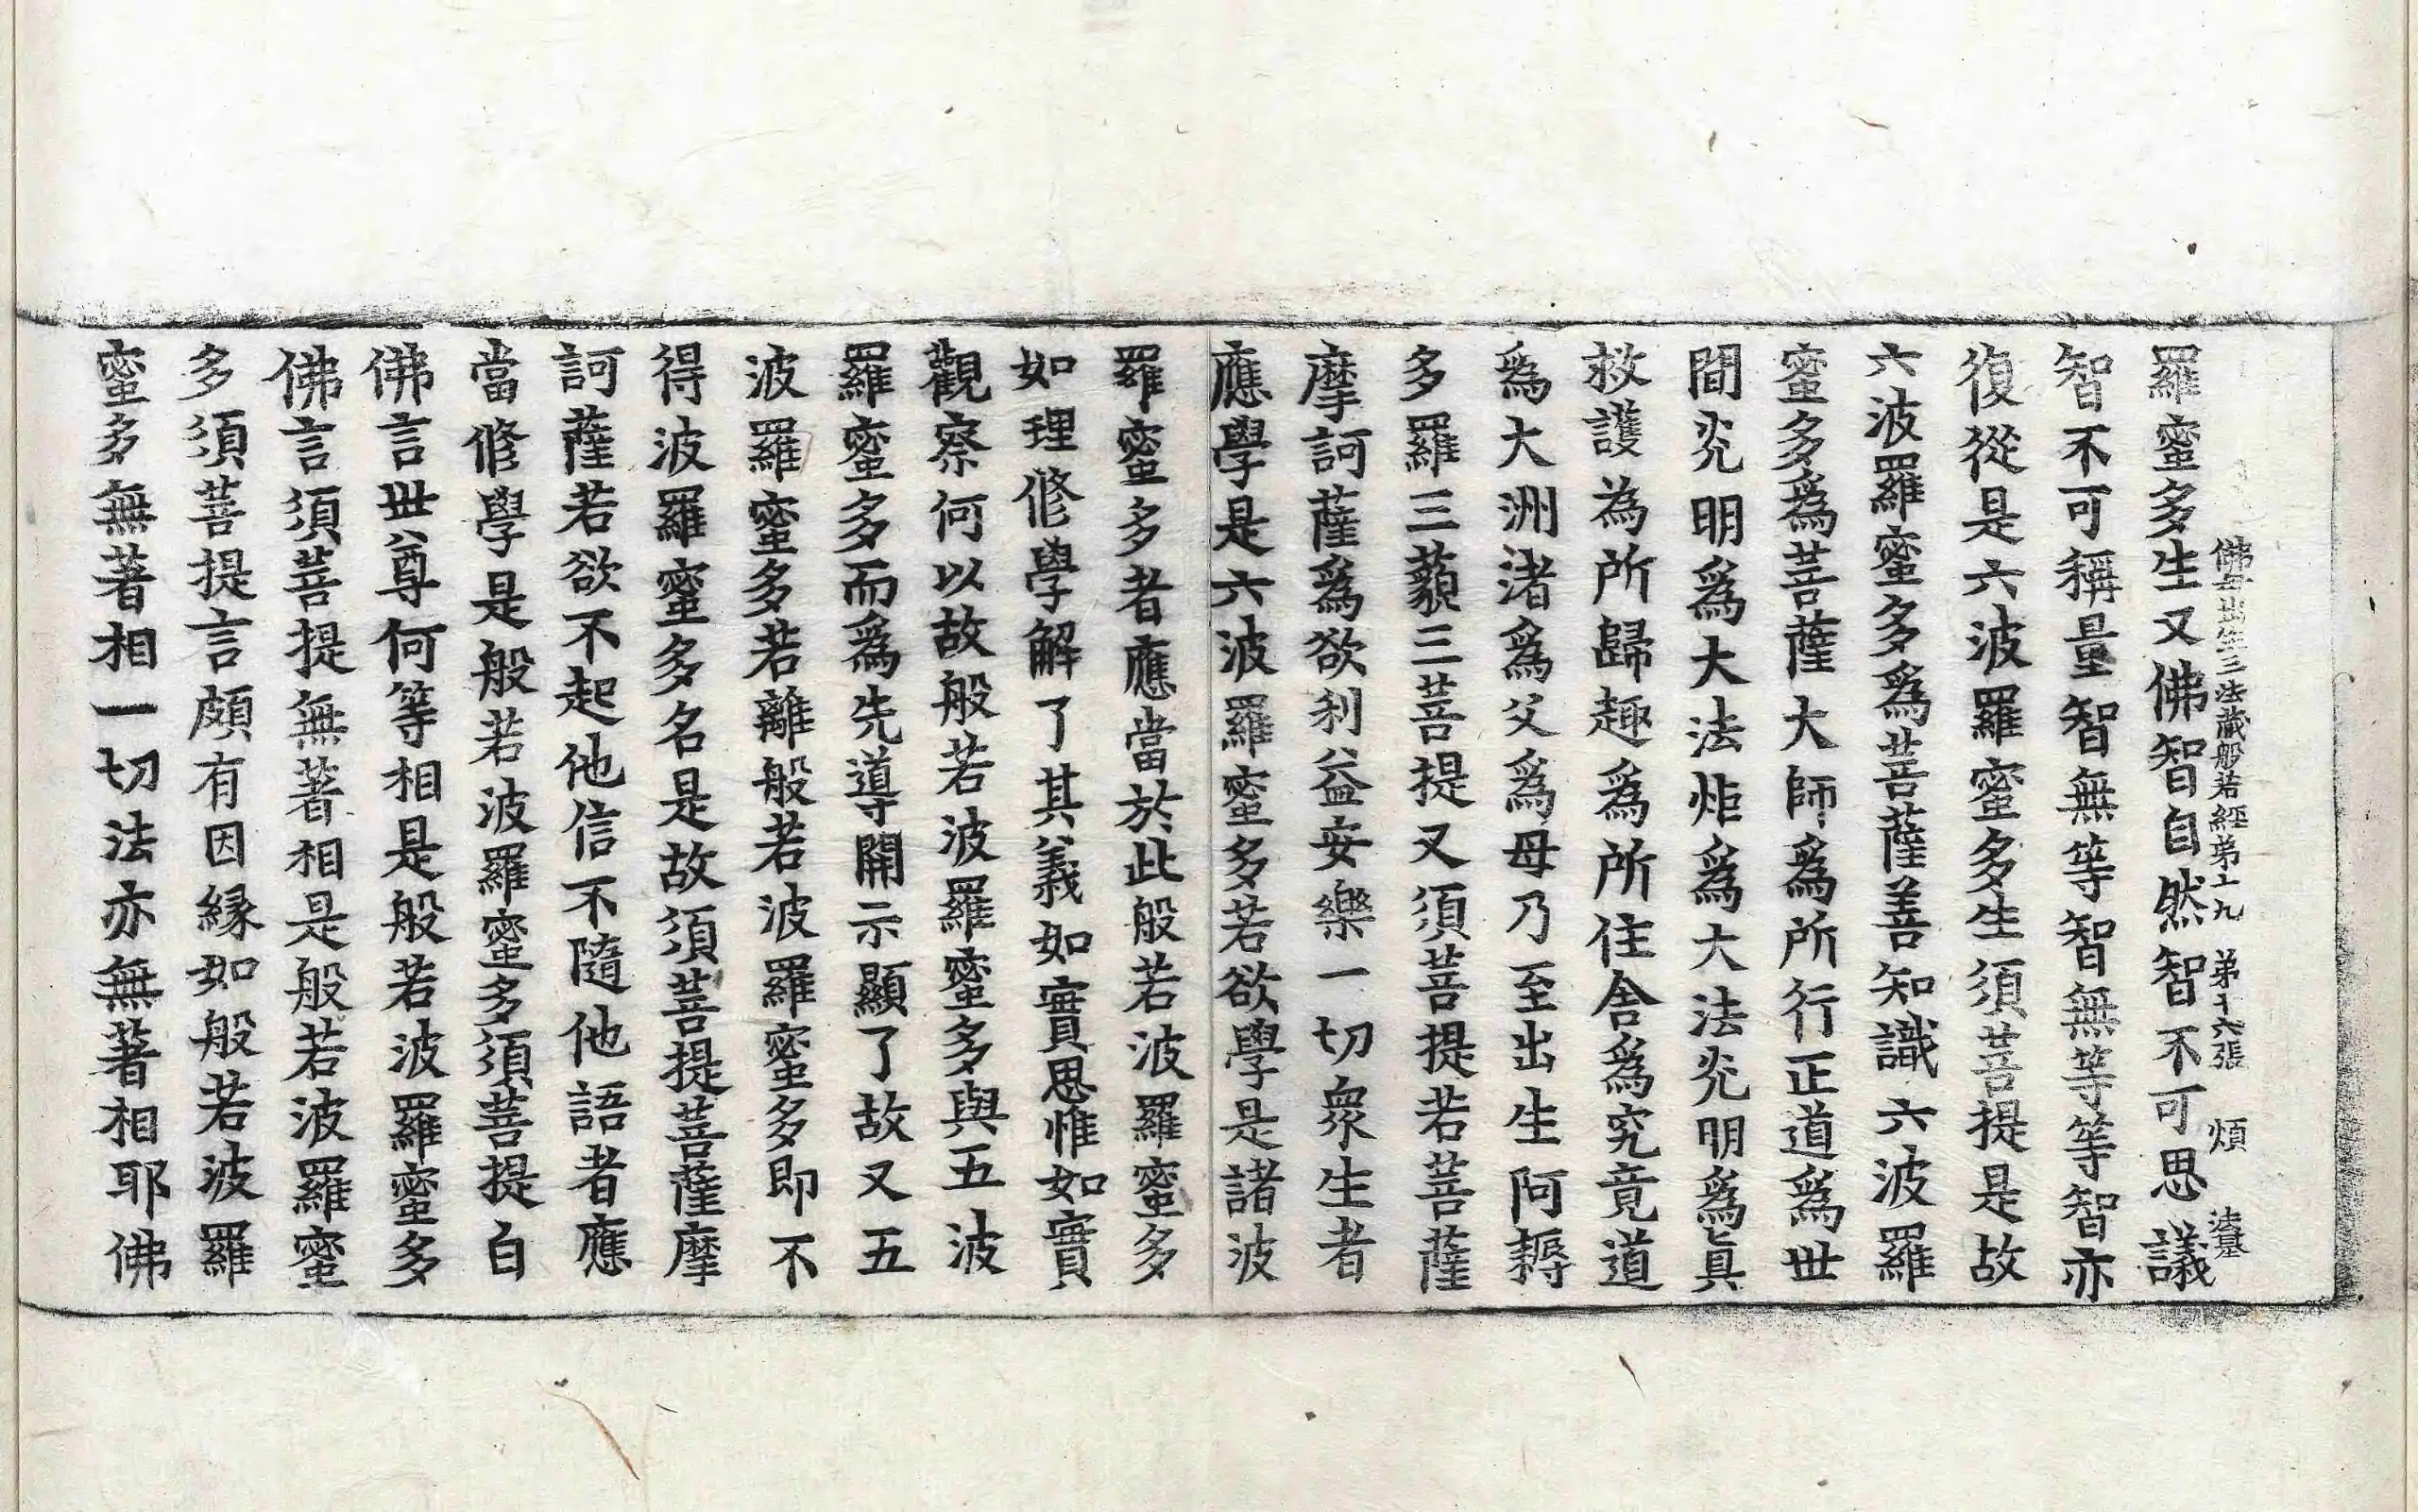 佛母出生三法藏般若經第十九 第十六張 煩 法基
羅蜜多生又佛智自然智不可思議
智不可稱量智無等智無等等智亦
復從是六波羅蜜多生須菩提是故
六波羅蜜多爲菩薩善知識六波羅
蜜多爲菩薩大師爲所行正道爲世
間光明爲大法炬爲大法光明爲眞
救護為所歸趣爲所住舎爲究竟道
爲大洲渚爲父爲母乃至出生阿耨
多羅三藐三菩提又須菩提若菩薩
摩訶薩爲欲利益安樂一切衆生者
應學是六波羅蜜多若欲學是諸波
羅蜜多者應當於此般若波羅蜜多
如理修學解了其義如實思惟如實
觀察何以故般若波羅蜜多與五波
羅蜜多而爲先導開示顯了故又五
波羅蜜多若離般若波羅蜜多即不
得波羅蜜多名是故須菩提菩薩摩
訶薩若欲不起他信不隨他語者應
當修學是般若波羅蜜多須菩提白
佛言世尊何等相是般若波羅蜜多
佛言須菩提無著相是般若波羅蜜
多須菩提言頗有因縁如般若波羅
蜜多無著相一切法亦無著相耶佛